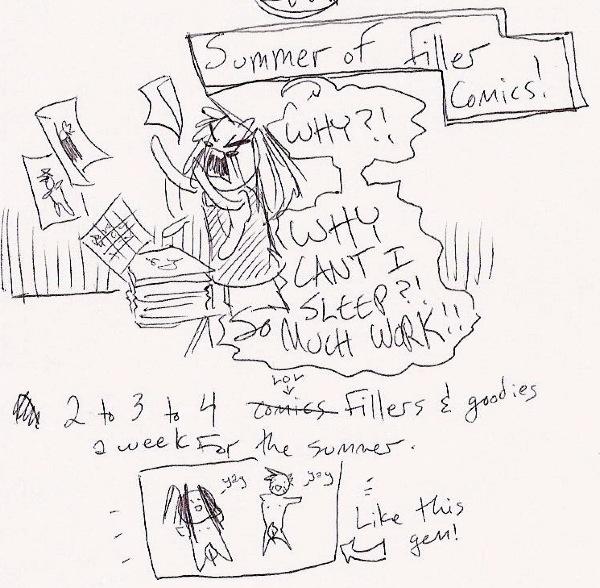 Summer of Filler
Comics!
WHY?!
WHY
CANT I
SLEEP?!
SO MUCH WORK!!
LOL
2 to 3 to 4 comics Fillers & goodies
a week for the summer.
yay
yay
Like this
gem!